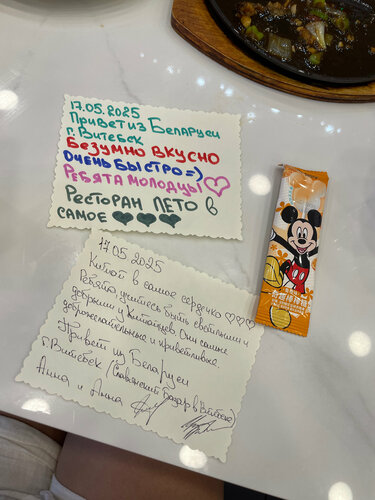 17.05.2025
Привет из Беларуси
г. Витебск
Безумно вкусно
Очень быстро =)
Ребята молодцы
Ресторан Лето в
самое
17.05.2025
Китай в самое сердечко
Ребята, учитесь быть светлыми и
добрыми у Китайцев. Они самые
доброжелательные и приветливые.
Привет из Беларуси
г. Витебск (Славянский Базар в Витебске)
Анна и Анна